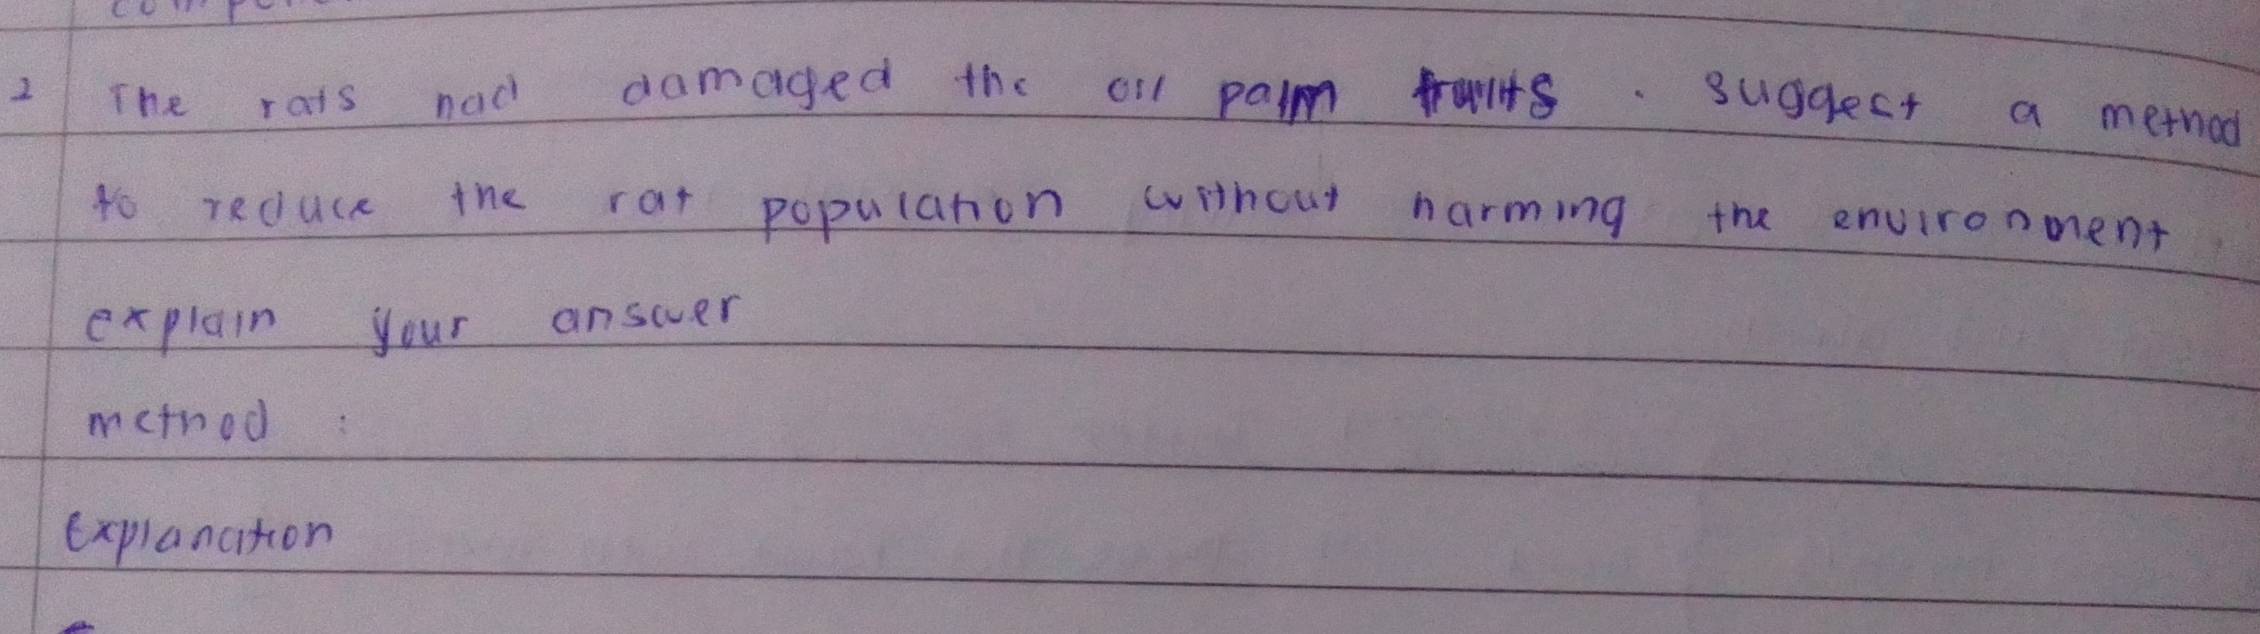 2 The rats had damaged the oil palm fruits. suggest a method
to reduce the rat population without harming the environment
explain your answer
method :
Explanation